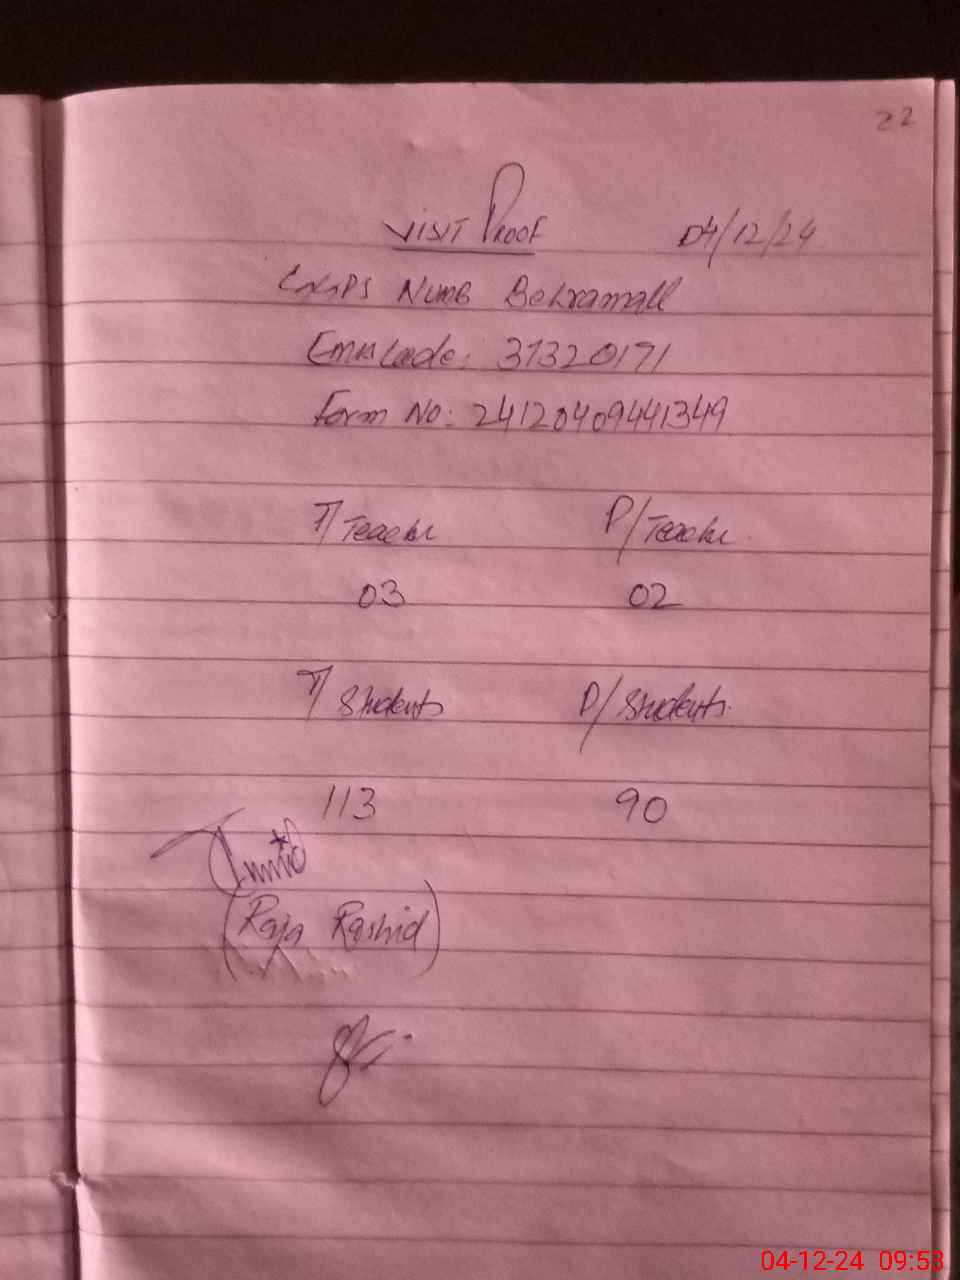 22
VISIT PROOF 04/12/24
GGPS Numb Behramall
EMIS Code: 37320171
Form No: 24120409441349
T/Teacher P/Teacher
03 02
T/Students P/Students
113 90
(Raja Rashid)
04-12-24 09:53